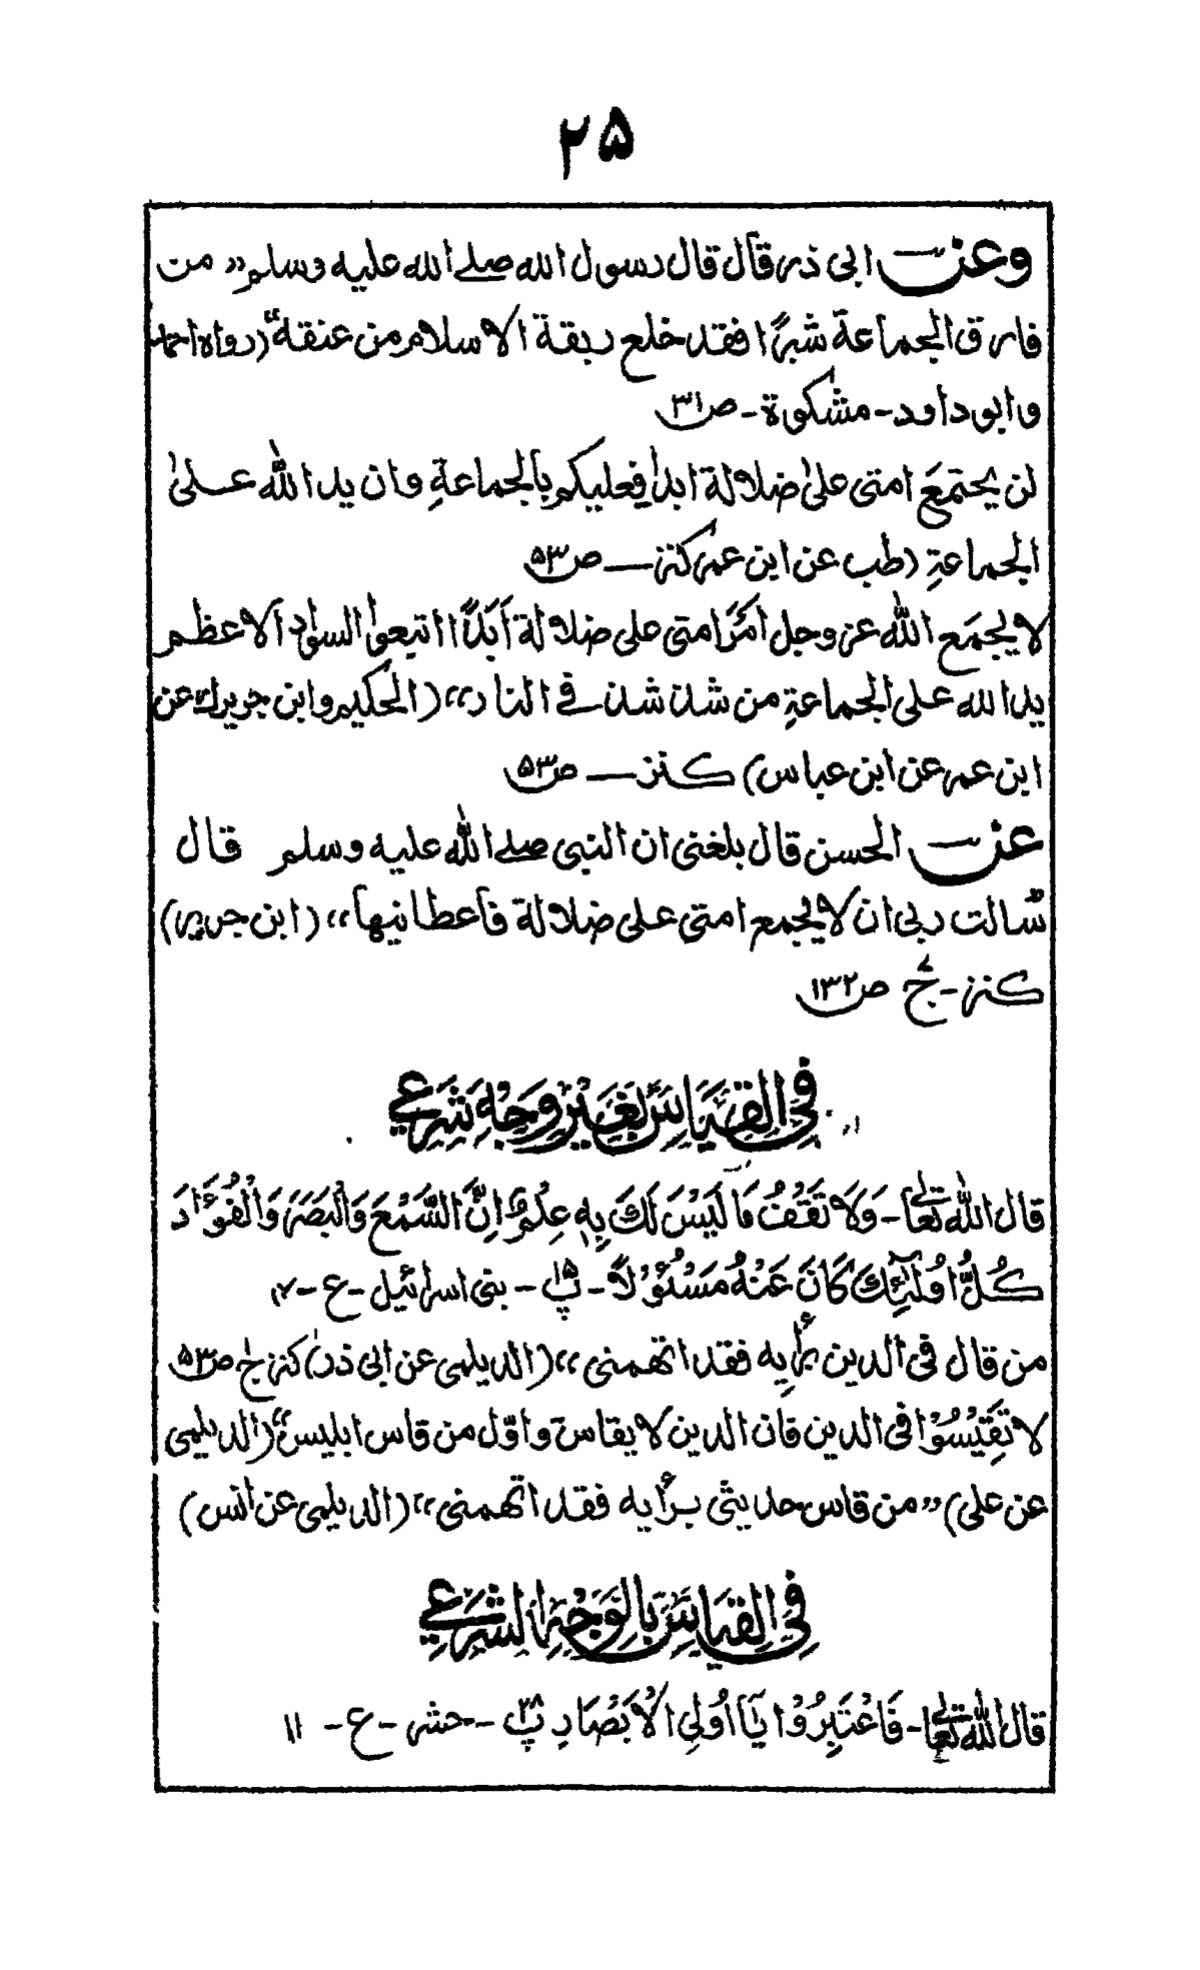 ۲۵
وعن ابی ذر قال قال رسول الله صلے الله علیه وسلم ”من
فارق الجماعة شبرًا فقد خلع ربقة الاسلام من عنقه“ (رواه احمد
وابوداود - مشكوة - ص۳۱
لن یجتمعَ امتی علیٰ ضلالة ابدًا فعلیکم بالجماعةِ وان ید اللّٰه عـلیٰ
الجماعةِ (طب عن ابن عمر کنز — ص۵۳
لا یجمَع اللّٰه عز وجل امرَ امتی علی ضلالة أَبَدًا اتبعوا السواد الاعظم
ید الله علی الجماعةِ من شذ شذ فی النار“ (الحکیم وابن جریر ك عن
ابن عمر عن ابن عباس) کنز — ص۵۳
عن الحسن قال بلغنی ان النبی صلے اللّٰه علیه وسلم قال
سُالت ربی ان لا یجمع امتی علی ضلالة فاعطانیها“ (ابن جریر)
کنز - ج ص۱۳۲
فِی الْقِیَاسِ بِغَیْرِ وَجْهِ شَرَعِی
قال اللّٰه تعالٰی - وَلَا تَقْفُ مَا لَیْسَ لَكَ بِهٖ عِلْمٌ اِنَّ السَّمْعَ وَالْبَصَرَ وَالْفُؤَادَ
کُلُّ اُولٰٓئِكَ کَانَ عَنْهُ مَسْئُوْلًا - پ۱۵ - بنی اسرائیل - ع - ۴
من قال فی الدین برأیه فقد اتهمنی“ (الدیلمی عن ابی ذر) کنز ج۱ ص۵۳
لا تَقِیْسُوْا فی الدین فان الدین لا یقاس واوّل من قاس ابلیس“ (الدیلمی
عن علی) ”من قاس حدیثی برأیه فقد اتهمنی“ (الدیلمی عن انس)
فِی الْقِیَاسِ بِالْوَجْهِ الشَّرَعِی
قال اللّٰه تعالٰی - فَاعْتَبِرُوْا یَآ اُولِی الْاَبْصَارِ پ۲۸ - حشر - ع - ۱۱